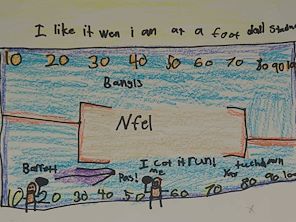 I like it wen i am at a foot dall Stadium
10 20 30 40 50 60 70 80 90 100
Bangls
Nfel
Barrett
Pas!
I cot it run!
me
tuchdown
Yay
10 20 30 50 60 70 80 90 100